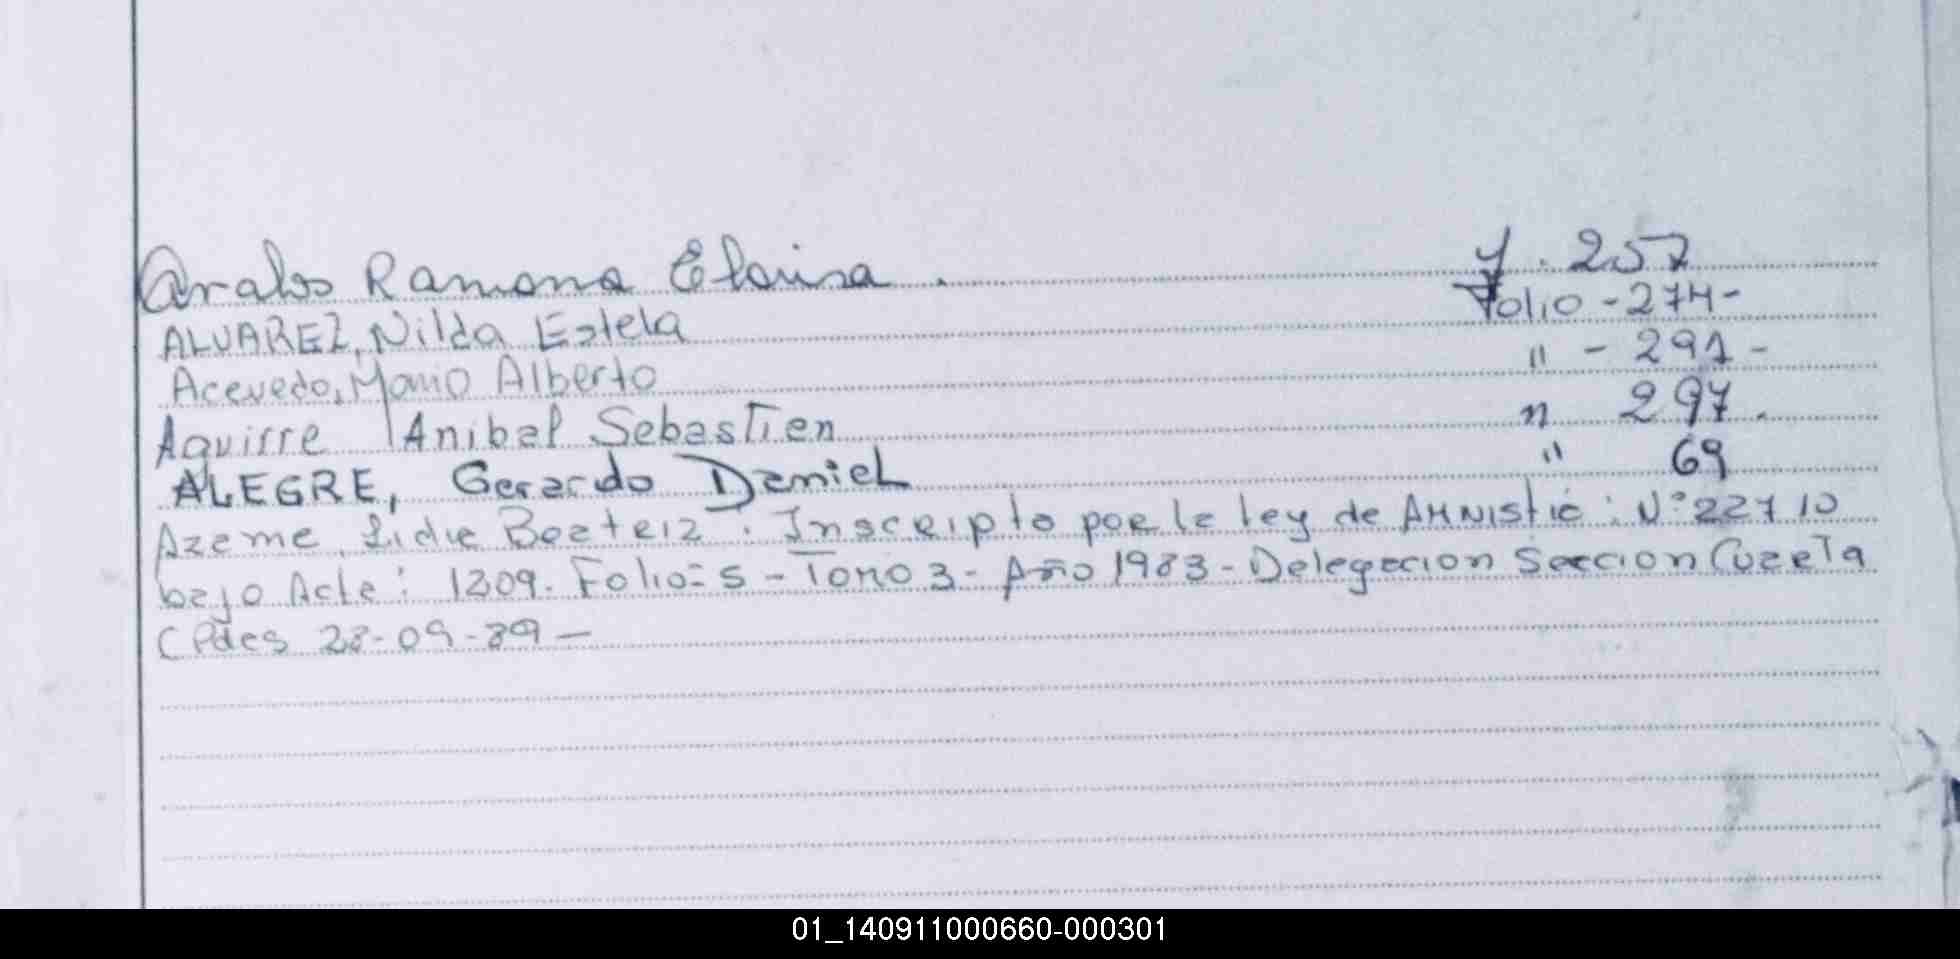 Aralos Ramona Eloisa . f. 257
ALVAREZ, Nilda Estela Folio - 274 -
Acevedo, Mario Alberto " - 291 -
Aguirre Anibal Sebastien " 297.
ALEGRE, Gerardo Daniel " 69
Azeme, Lidie Beeteiz . Inscripto por le ley de AMNistie : Nº 22710
bajo Acte : 1209. Folio = 5 - Tomo 3 - Año 1983 - Delegecion Seccion
C Pdes 28-09-89 —
01_140911000660-000301